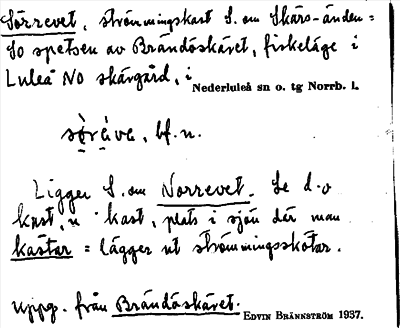 Sörrevet, strömmingskast S. om Skärs-änden =
So spetsen av Brändöskäret, fiskeläge i
Luleå No skärgård, i Nederluleå sn o. tg Norrb. l.
sø̀rė́və, bf. n.
Ligger S. om Norrevet. Se d. o
kast, n kast, plats i sjön där man
kastar = lägger ut strömmingsskötar.
Uppg. från Brändöskäret.
EDVIN BRÄNNSTRÖM 1937.